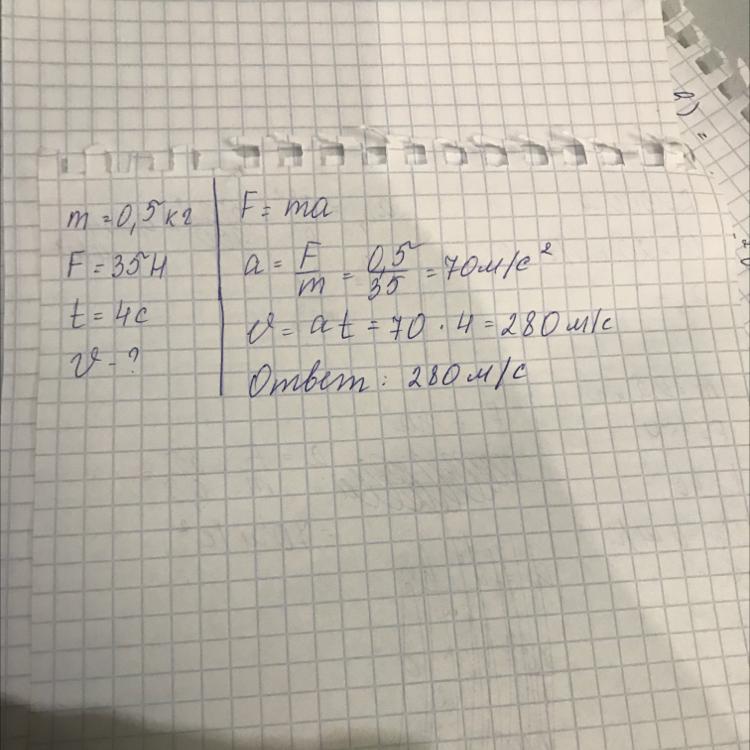 m = 0,5 кг
F = 35 Н
t = 4с
v - ?
F = ma
a = F/m = 0,5/35 = 70 м/с²
v = at = 70 · 4 = 280 м/с
Ответ: 280 м/с